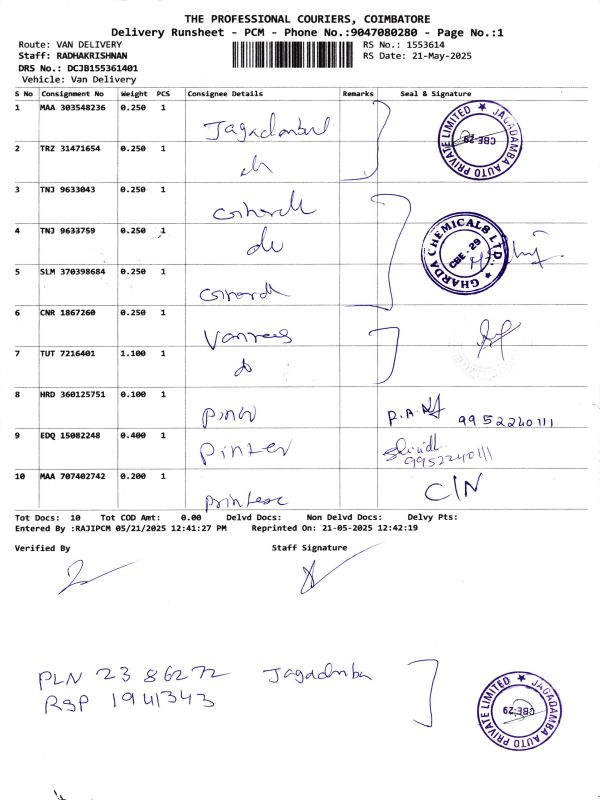 THE PROFESSIONAL COURIERS, COIMBATORE
Delivery Runsheet - PCM - Phone No.:9047080280 - Page No.:1
Route: VAN DELIVERY
RS No.: 1553614
Staff: RADHAKRISHNAN
RS Date: 21-May-2025
DRS No.: DCJB155361401
Vehicle: Van Delivery
S No Consignment No Weight PCS Consignee Details Remarks Seal & Signature
1 MAA 303548236 0.250 1
JAGADAMBA AUTO PRIVATE LIMITED ★ CBE-29
2 TRZ 31471654 0.250 1
3 TNJ 9633043 0.250 1
4 TNJ 9633759 0.250 1 do
GHARDA CHEMICALS LTD. ★ CBE - 29
5 SLM 370398684 0.250 1
6 CNR 1867260 0.250 1
7 TUT 7216401 1.100 1
8 HRD 360125751 0.100 1
9952240111
9 EDQ 15082248 0.400 1 Printer
9952240111
10 MAA 707402742 0.200 1
C/N
Tot Docs: 10 Tot COD Amt: 0.00 Delvd Docs: Non Delvd Docs: Delvy Pts:
Entered By :RAJIPCM 05/21/2025 12:41:27 PM Reprinted On: 21-05-2025 12:42:19
Verified By Staff Signature
PLN 2386272 Jagadamba
RGP 1941343
JAGADAMBA AUTO PRIVATE LIMITED ★ CBE-29